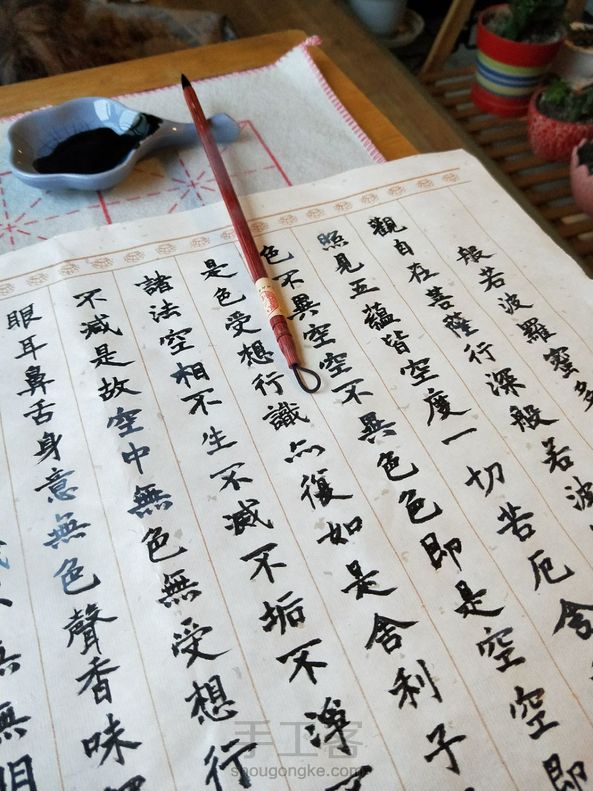 般若波羅蜜多
觀自在菩薩行深般若波
照見五蘊皆空度一切苦厄舍
色不異空空不異色色即是空空即
是色受想行識亦復如是舍利子
諸法空相不生不滅不垢不淨
不減是故空中無色無受想行
眼耳鼻舌身意無色聲香味
無無明
手工客
shougongke.com